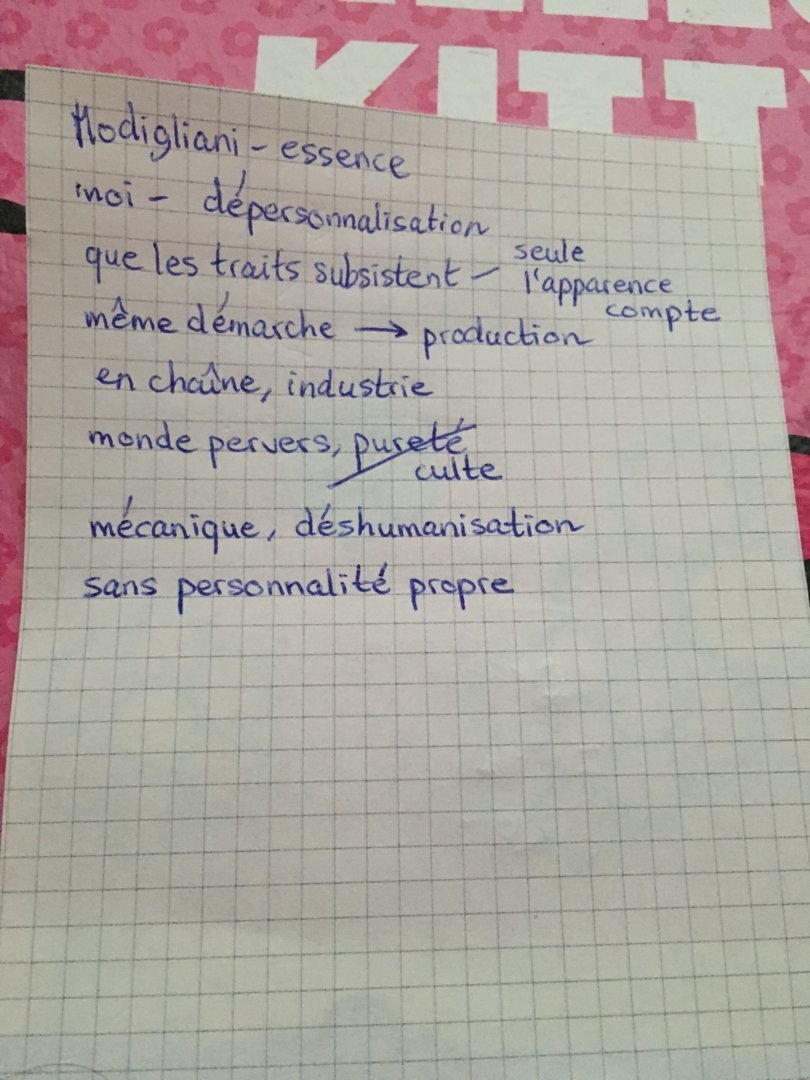 KITTY
Modigliani - essence
moi - dépersonnalisation
que les traits subsistent - seule
l'apparence
compte
même démarche → production
en chaîne, industrie
monde pervers, pureté
culte
mécanique, déshumanisation
sans personnalité propre